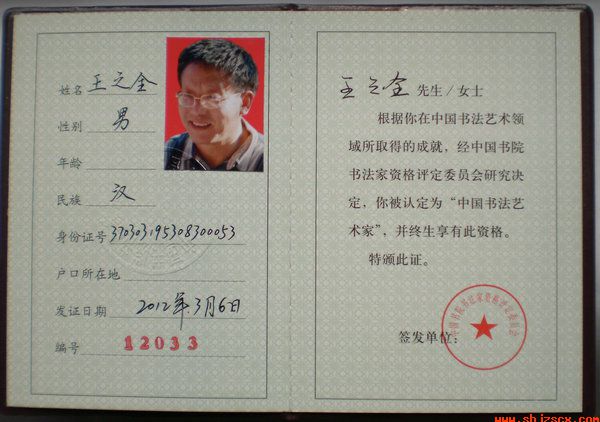 姓名 王之全
性别 男
年龄
民族 汉
身份证号 370303195308300053
户口所在地
发证日期 2012年3月6日
编号 12033
王之全 先生/女士
根据你在中国书法艺术领
域所取得的成就，经中国书院
书法家资格评定委员会研究决
定，你被认定为“中国书法艺
术家”，并终生享有此资格。
特颁此证。
签发单位：
中国书院书法家资格评定委员会
www.shjzscx.com